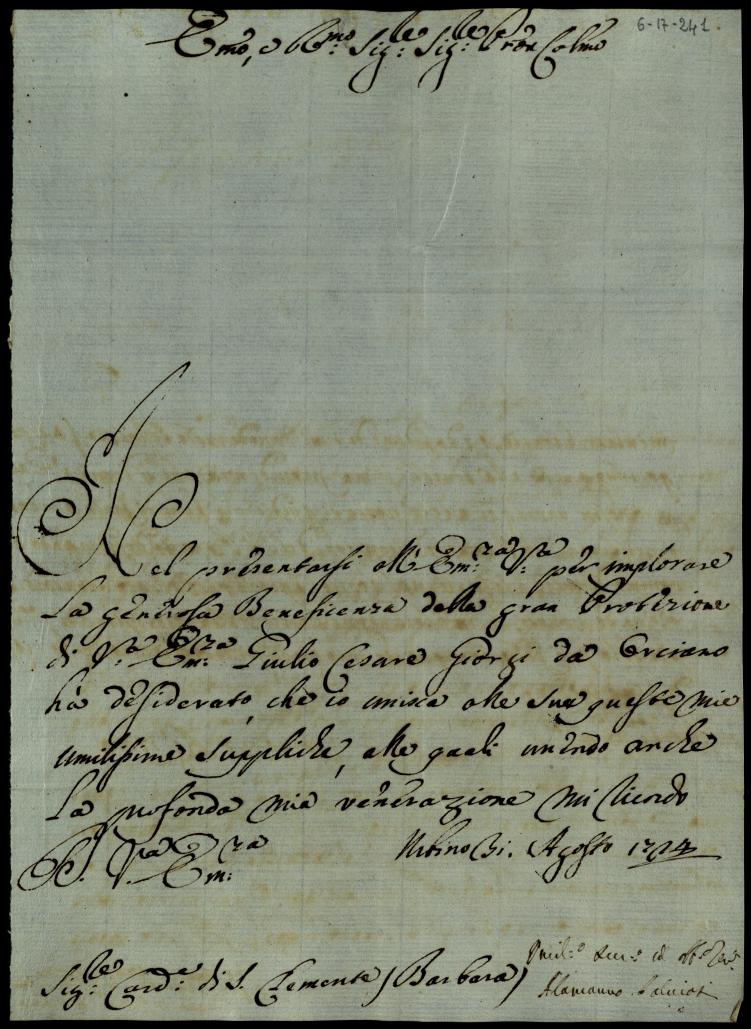 6-17-241.
Emo, e Rmo Sig:re Sig:re Pron Colmo
Nel presentarsi all' Em:za V:ra per implorare
La generosa Beneficenza della gran Protezione
di V:ra Em:za Giulio Cesare Giorgi da Orciano
hà desiderato, che io unisca alle sue queste mie
umilissime suppliche, alle quali unendo anche
La profonda mia venerazione mi ricordo
D. V:ra Em:za Urbino 31. Agosto 1724
Sig:re Card:e di S. Clemente (Barbara)
Alamanno Salviati